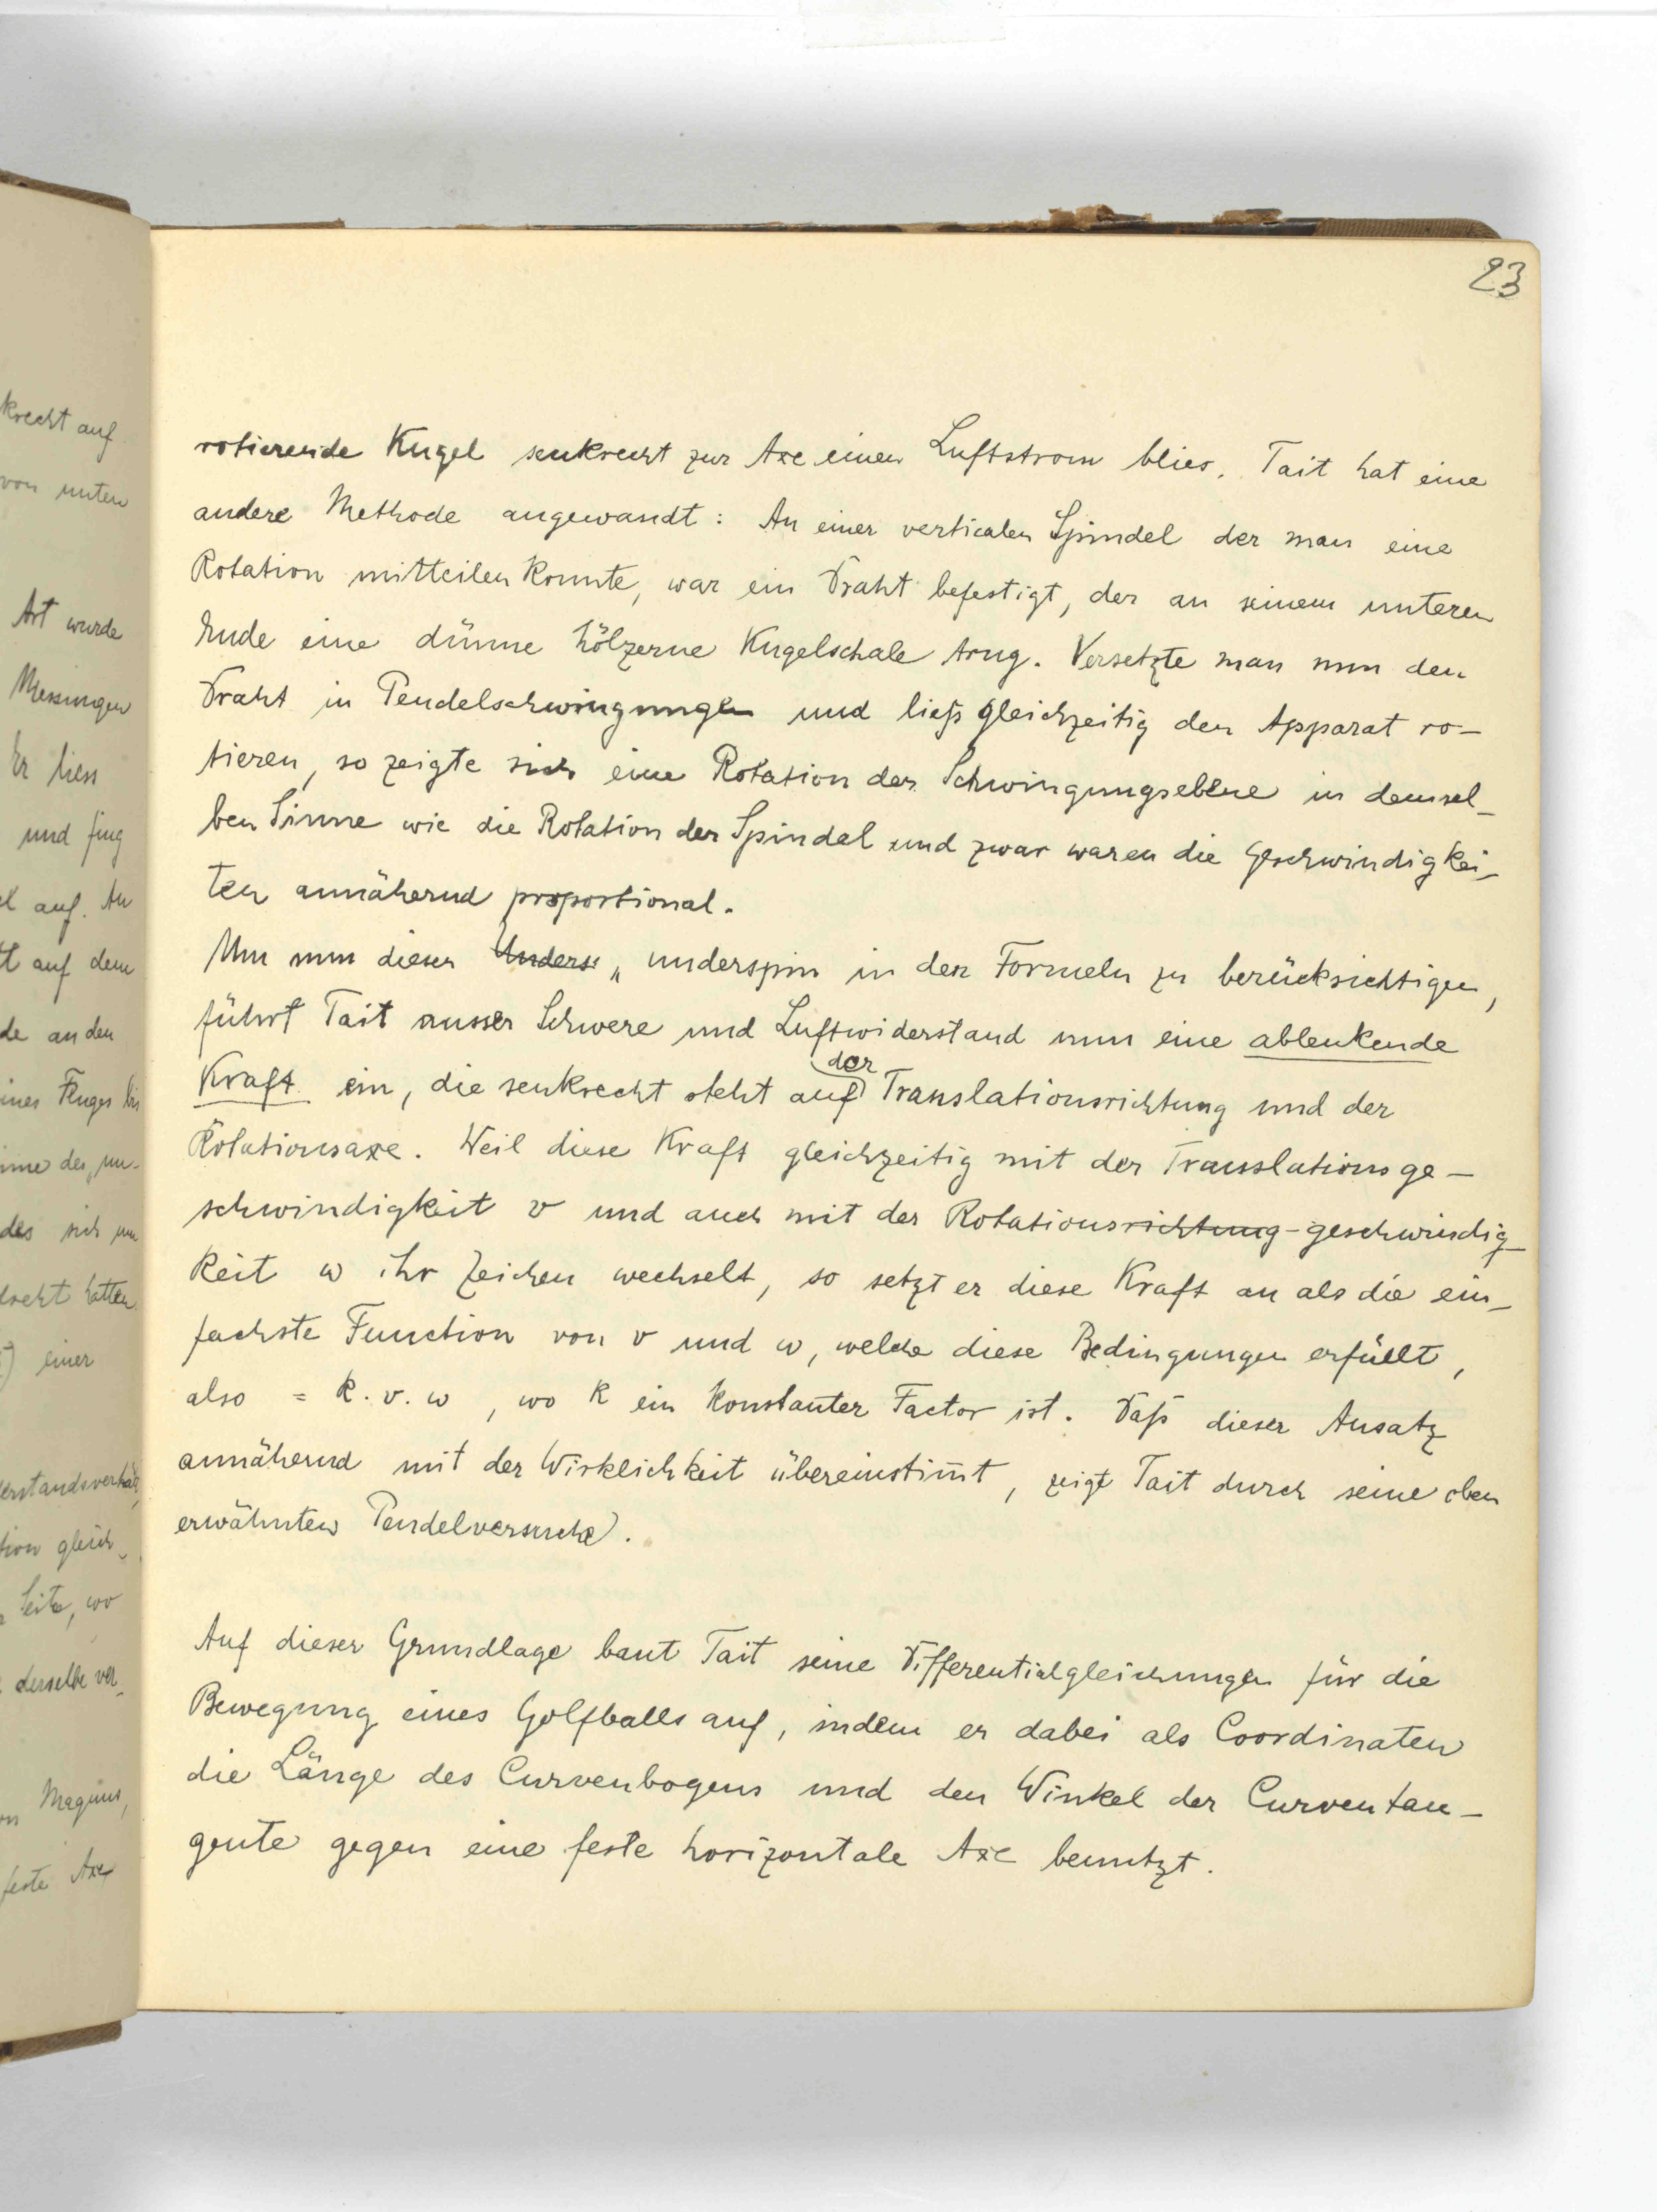 23
rotierende Kugel senkrecht zur Axe einen Luftstrom blies. Tait hat eine
andere Methode angewandt: An einer verticalen Spindel der man eine
Rotation mitteilen konnte, war ein Draht befestigt, der an seinem unteren
Ende eine dünne hölzerne Kugelschale trug. Versetzte man nun den
Draht in Pendelschwingungen und ließ gleichzeitig den Apparat ro-
tieren, so zeigte sich eine Rotation der Schwingungsebene in demsel-
ben Sinne wie die Rotation der Spindel und zwar waren die Geschwindigkei-
ten annähernd proportional.
Um nun diesen Unders „underspin in den Formeln zu berücksichtigen,
führt Tait ausser Schwere und Luftwiderstand nun eine ablenkende
Kraft ein, die senkrecht steht auf der Translationsrichtung und der
Rotationsaxe. Weil diese Kraft gleichzeitig mit der Translationsge-
schwindigkeit v und auch mit der Rotationsrichtung-geschwindig-
keit w ihr Zeichen wechselt, so setzt er diese Kraft an als die ein-
fachste Function von v und w, welche diese Bedingungen erfüllt,
also = k. v. w, wo k ein konstanter Factor ist. Daß dieser Ansatz
annähernd mit der Wirklichkeit übereinstim̄t, zeigt Tait durch seine oben
erwähnten Pendelversuche.
Auf dieser Grundlage baut Tait seine Differentialgleichungen für die
Bewegung eines Golfballs auf, indem er dabei als Coordinaten
die Länge des Curvenbogens und den Winkel der Curventan-
gente gegen eine feste horizontale Axe benutzt.
krecht auf
von unten
Art wurde
Messingen
Er liess
und fing
auf. An
auf dem
de an den
ines Fluges bis
des „un-
des sich um
hatten.
einer
erstandsverhält
tion gleich-
Seite, wo
derselbe ver-
Magnus,
feste Axe